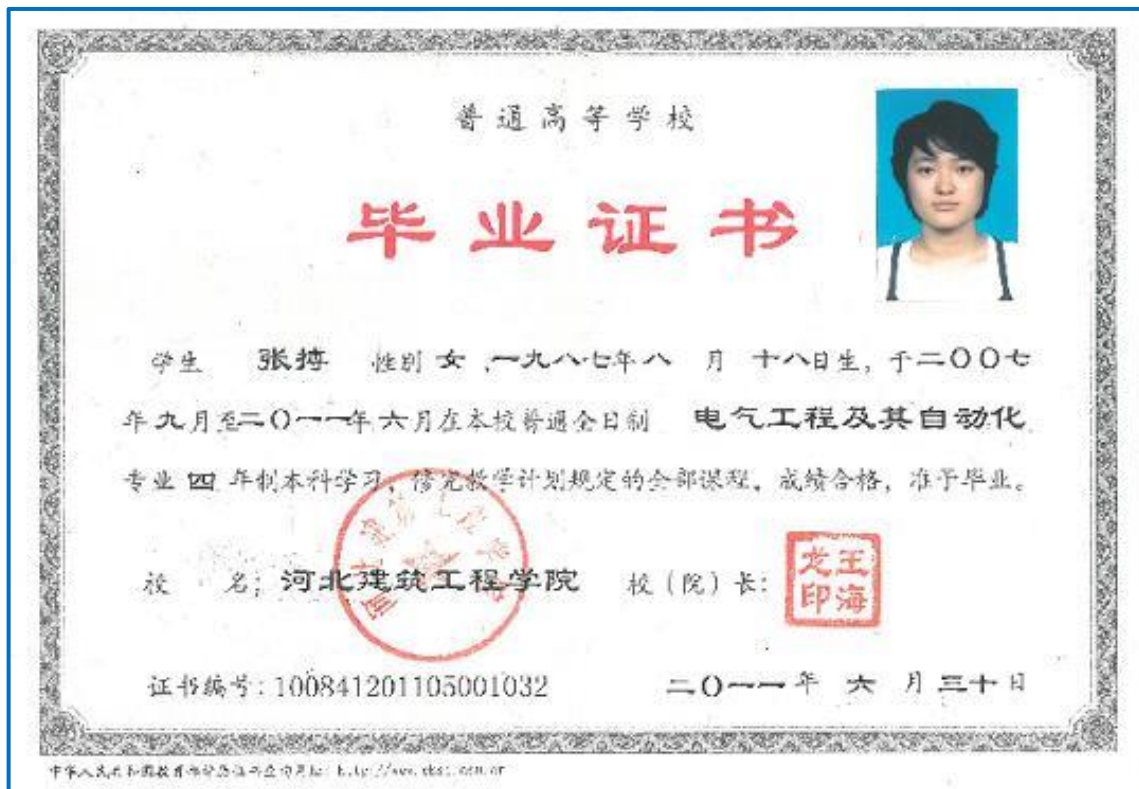 普通高等学校
毕业证书
学生 张搏 性别 女 ,一九八七年八 月 十八日生, 于二〇〇七
年九月至二〇一一年六月在本校普通全日制 电气工程及其自动化
专业 四 年制本科学习, 修完教学计划规定的全部课程, 成绩合格, 准予毕业。
校 名: 河北建筑工程学院 校(院)长:
王海龙印
证书编号: 100841201105001032 二〇一一年 六 月 三十日
中华人民共和国教育部学历证书查询网址: http://www.chsi.com.cn